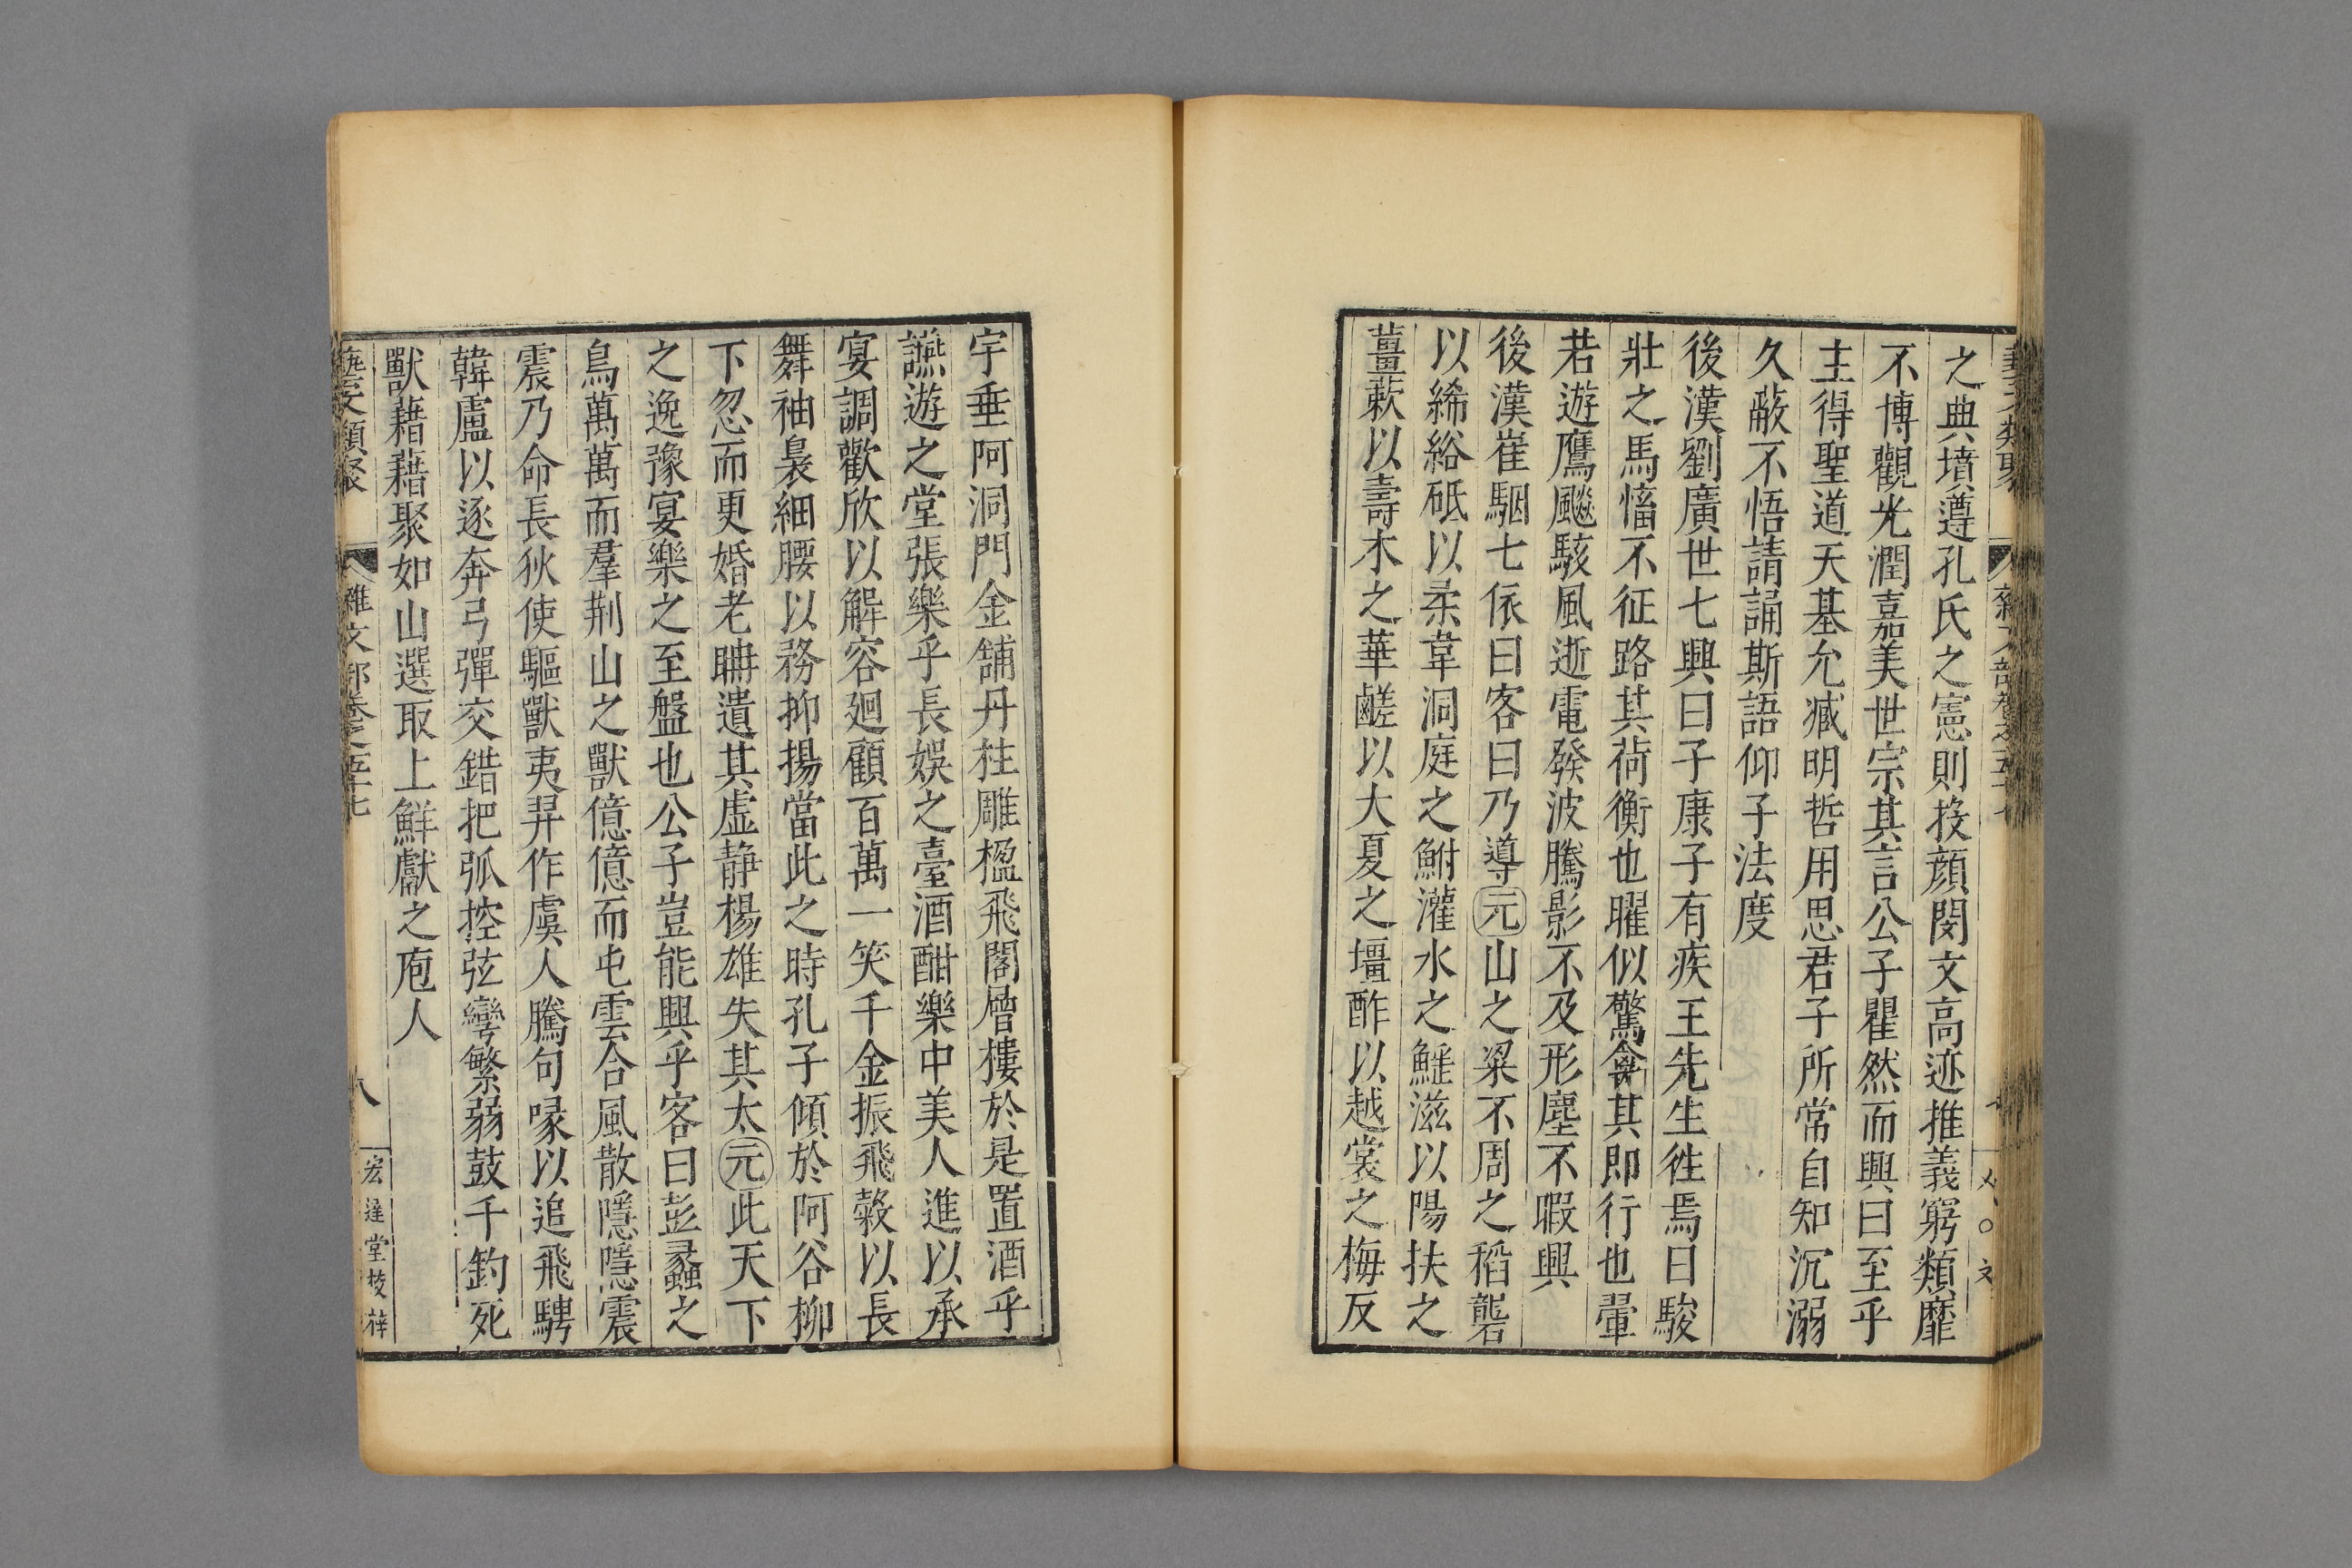 之典墳遵孔氏之憲則投顔閔文高迹推義窮類靡
不博觀光潤嘉美世宗其言公子瞿然而興曰至乎
主得聖道天基允臧明哲用思君子所常自知沉溺
久蔽不悟請誦斯語仰子法度
後漢劉廣世七興曰子康子有疾王先生徃焉曰駿
壯之馬慉不征路其荷衡也曜似驚禽其即行也翬
若遊鷹飈駭風逝電發波騰影不及形塵不暇興
後漢崔駰七依曰客曰乃導元山之粱不周之稻礱
以絺綌砥以柔韋洞庭之鮒灌水之鰩滋以陽扶之
薑蔌以壽木之華鹺以大夏之壃酢以越裳之梅反
宇垂阿洞門金鋪丹柱雕楹飛閣層樓於是置酒乎
讌遊之堂張樂乎長娛之臺酒酣樂中美人進以承
宴調歡欣以解容廻顧百萬一笑千金振飛縠以長
舞袖裊細腰以務抑揚當此之時孔子傾於阿谷柳
下忽而更婚老聃遺其虛静楊雄失其太元此天下
之逸豫宴樂之至盤也公子豈能興乎客曰彭蠡之
鳥萬萬而羣荆山之獸億億而屯雲合風散隱隱震
震乃命長狄使驅獸夷羿作虞人騰句喙以追飛騁
韓盧以逐奔弓彈交錯把弧控弦彎繁弱鼓千鈞死
獸藉藉聚如山選取上鮮獻之庖人
藝文類聚 雜文部卷之五十七 八 宏達堂校梓